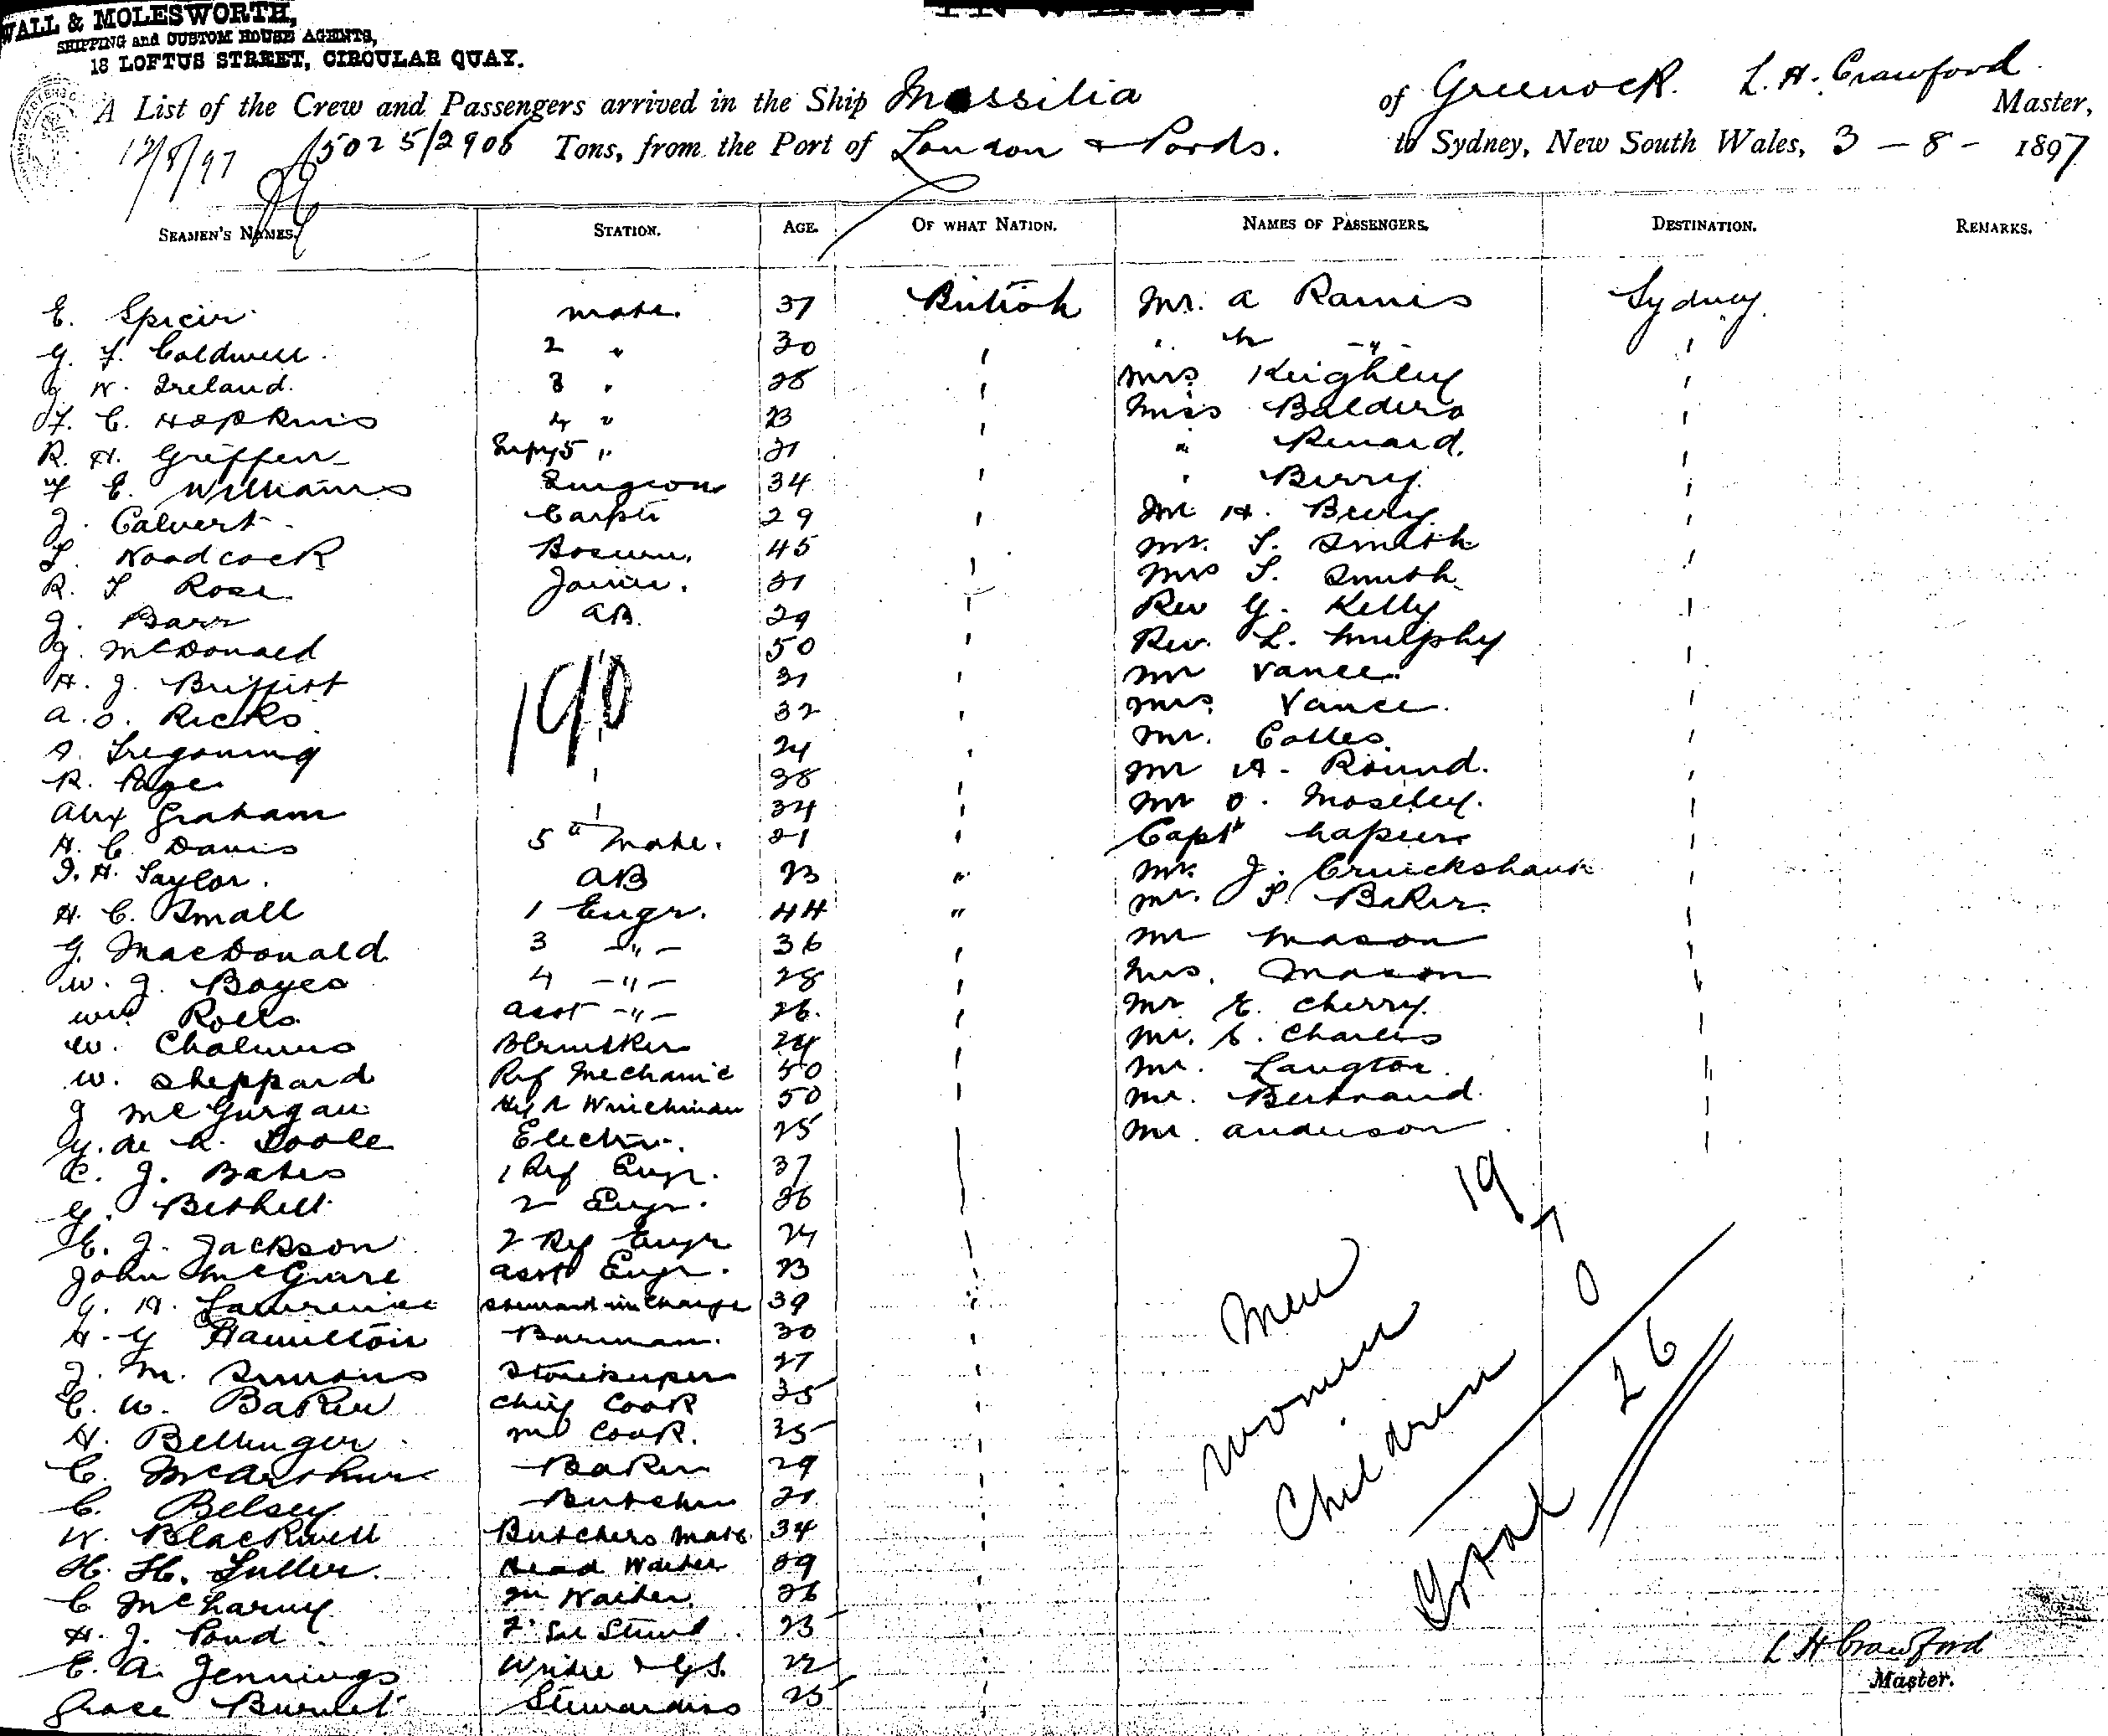 WALL & MOLESWORTH,
SHIPPING and CUSTOM HOUSE AGENTS,
18 LOFTUS STREET, CIRCULAR QUAY.
A List of the Crew and Passengers arrived in the Ship Massilia of Greenock. L. H. Crawford Master,
12/8/97 5025/2906 Tons, from the Port of London & Ports. to Sydney, New South Wales, 3 - 8 - 1897
SEAMEN'S NAMES. STATION. AGE. OF WHAT NATION. NAMES OF PASSENGERS. DESTINATION. REMARKS.
E. Spicer mate. 37 British Mr. A Ramis Sydney
G. F. Coldwell. 2 " 30
G W. Ireland. 3 " Mrs Keighley
F. C. Hopkins 4 " 23 Miss Baldero
R. H. Griffen 5 " 21 " Renard.
E. Williams Surgeon 34 " Berry
J. Calvert Carptr 29 Mr H. Berry
L. Woodcock Bosun. 45 Mr. S. Smith
R. F Rose Joiner. 31 Mrs S. Smith
J. Barr AB. 29 Rev G. Kelly
J. McDonald 50 Rev. L. Murphy
H. J. 31 Mr Vance
A. O. Ricks 190 32 Mrs Vance.
Tregoning 24 Mr. Colles
R. Page 38 Mr A. Round.
Alex Graham 34 Mr O. Moseley.
H. C. Davis 5th Mate. 21 Capt Napier
J. H. Taylor. AB 23 " Mr. J. Cruickshank
H. C. Small 1 Engr. 44 " Mr. P. Baker
G. MacDonald 3 -"- 36 Mr Mason
W. J. Boyes 4 -"- 28 Mrs. Mason
Wm Rolls asst -"- 26. Mr E. Cherry.
W. Chalmers 24 Mr. S. Charles
W. Sheppard Ref Mechanic 50 Mr. Langton.
J McGurgan Winchman 50 Mr. Bertrand.
G. de L. Poole Electn. 25 Mr. Anderson
C. J. Bates 1 Ref Engr. 37
G. Bethell 2 Engr. 26 19
E. J. Jackson 2 Ref Engr 24 7
John McGuire asst Engr. 23 Men 0
G. H. Lawrence Steward in Charge 39
H. G Hamilton Barman. 30 Women 26
J. M. Simons Storekeeper 27
C. W. Baker Chief Cook 35 Children
H. Bellinger Cook. 25
C. McArthur Baker 29
C. Belsey Butcher 21 Total
W. Blackwell Butchers Mate 34
H. H. Fuller. Head Waiter
C McCharny Waiter. 26
H. J. Pond 2 23 L H Crawford
E. A. Jennings Writer & G.S. 22 Master.
Grace Burnet Stewardess 25